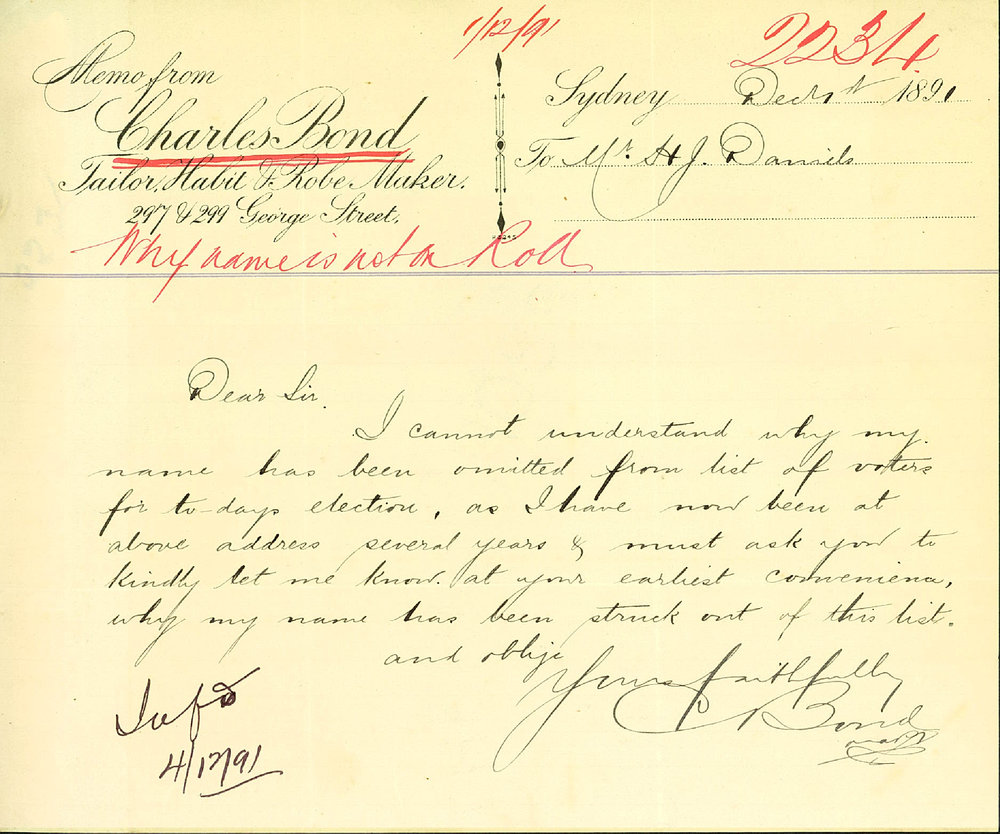 1/12/91
2234
Memo from
Charles Bond
Tailor, Habit & Robe Maker.
297 & 299 George Street.
Sydney Dec 1st 1891
To Mr. H J. Daniels
Why name is not on Roll
Dear Sir.
I cannot understand why my
name has been omitted from list of voters
for to-days election, as I have now been at
above address several years & must ask you to
kindly let me know at your earliest convenience,
why my name has been struck out of this list.
and oblige
Yours faithfully
C Bond
Infd
4/12/91